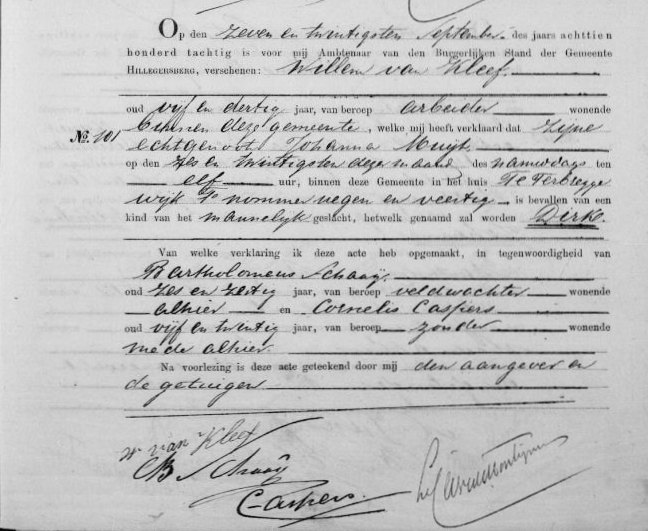 Op den zeven en twintigsten September des jaars achttien
honderd tachtig is voor mij Ambtenaar van den Burgerlijken Stand der Gemeente
HILLEGERSBERG, verschenen: Willem van Kleef.
oud vijf en dertig jaar, van beroep arbeider wonende
No. 101 binnen deze gemeente, welke mij heeft verklaard dat zijne
echtgenoot Johanna Muijt
op den zes en twintigsten dezer maand des namiddags ten
elf uur, binnen deze Gemeente in het huis Te Terbregge
wijk nommer negen en veertig is bevallen van een
kind van het mannelijk geslacht, hetwelk genaamd zal worden Dirk.
Van welke verklaring ik deze acte heb opgemaakt, in tegenwoordigheid van
Bartholomeus Schaaij.
oud zes en zestig jaar, van beroep veldwachter wonende
alhier en Cornelis Caspers
oud vijf en twintig jaar, van beroep zonder wonende
mede alhier.
Na voorlezing is deze acte geteekend door mij den aangever en
de getuigen
W van Kleef
B Schaaij
C Caspers.